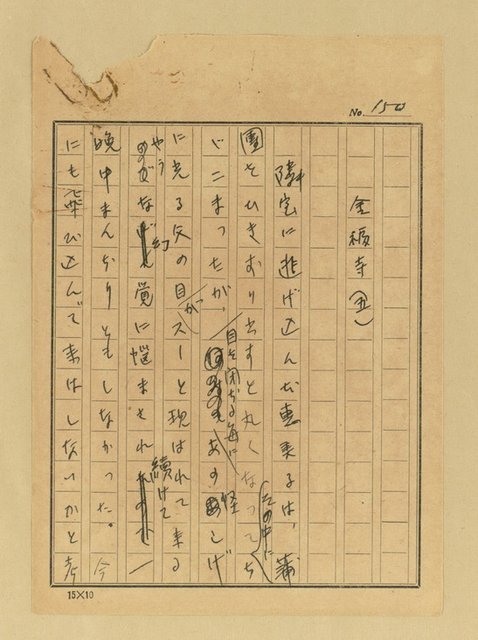 No. 150
金福寺(五)
隣宅に逃げ込んだ恵美子は、蒲
團をひきずり出すと丸くなってその中にち
ゞこまったが、目を閉ぢる毎にあの怪しげ
に光る父の目がスーと現はれて来る
やうな幻覚に悩まされ続けて一
晩中まんぢりともしなかった。今
にも飛び込んで来はしないかと考
15×10